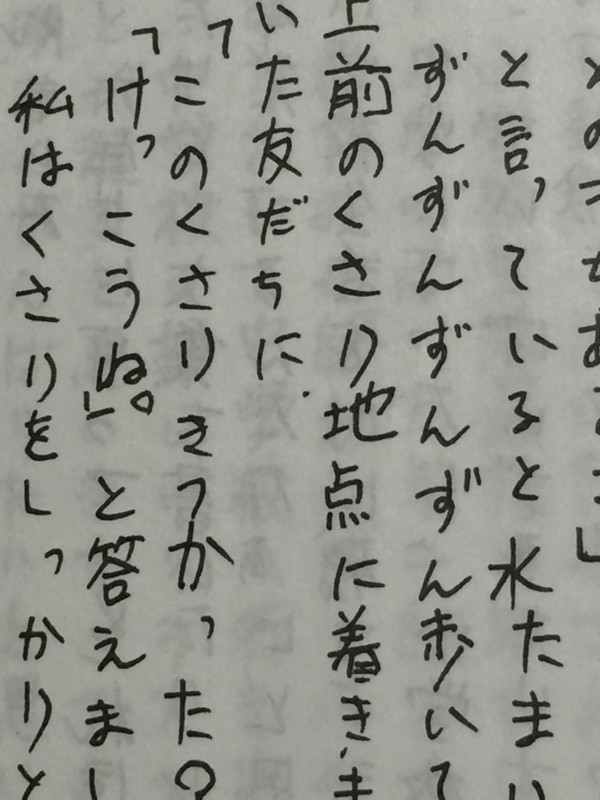 と言っていると水たまり
ずんずんずんずん歩いて
前のくさり地点に着きま
いた友だちに、
「このくさりきつかった？
「けっこうね。」と答えまし
私はくさりをしっかりと